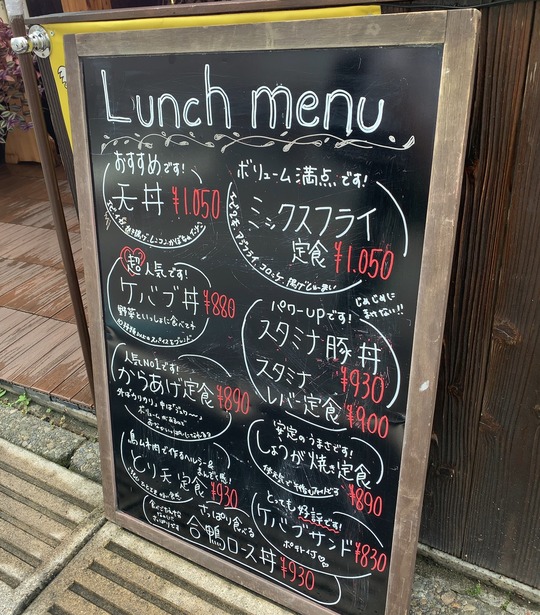 Lunch menu
おすすめです!
天丼 ¥1.050
ボリューム満点です!
ミックスフライ
定食 ¥1.050
超人気です!
ケバブ丼 ¥880
野菜といっしょに食べてネ
じめじめに
まけない!!
パワーUPです!
スタミナ豚丼
¥930
スタミナ
レバー定食 ¥900
人気No1です!
からあげ定食 ¥890
外はカリカリ
ボリュームがあるので
安定のうまさです!
しょうが焼き定食
¥890
鳥ムネ肉で作るヘルシー&
とり天定食 ¥930
とっても好評です!
ケバブサンド ¥830
ポテト付
さっぱり食べる
合鴨ロース丼 ¥930